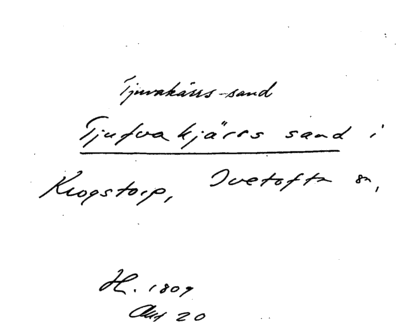 Tjuvakärrs-sand
Tjufvakjärrs sand i
Krogstorp, Ivetofta sn,
H. 1809
Akt 20